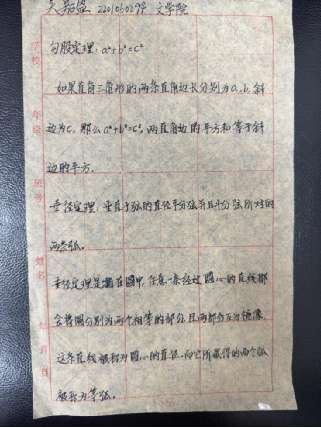 2201060298 文学院
勾股定理：a²+b²=c²
如果直角三角形的两条直角边长分别为a,b,斜
边为c,那么a²+b²=c²,两直角边的平方和等于斜
边的平方.
垂径定理:垂直于弦的直径平分弦并且平分弦所对的
两条弧.
垂径定理是在圆中,任意一条经过圆心的直线都
会将圆分别为两个相等的部分且两部分互为镜像.
这条直线被称对圆心的直径,而它所截得的两个弧
被称为等弧.
学校
年级
班号
姓名